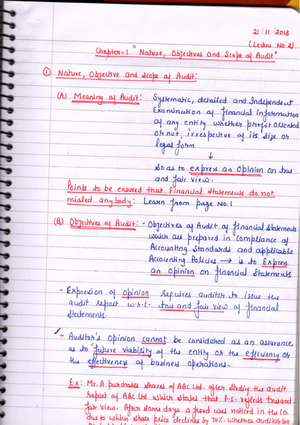 21/11/2018
(Lecture No 2)
Chapter-1 "Nature, Objectives and Scope of Audit"
① Nature, Objective and Scope of Audit:
(A) Meaning of Audit: Systematic, detailed and Independent
Examination of financial Information
of any entity whether profit oriented
or not, irrespective of its size or
legal form
↓
so as to express an opinion on true
and fair view.
Points to be ensured that Financial Statements do not
misled anybody: Learn from page No. 1
(B) Objectives of Audit: - Objectives of Audit of financial statements
which are prepared in compliance of
Accounting Standards and applicable
Accounting Policies → is to Express
an Opinion on financial Statements
- Expression of Opinion requires auditor to issue the
audit report w.r.t. true and fair view of financial
statements
- Auditor's opinion cannot be considered as an assurance
as to future viability of the entity or the efficiency or
the effectiveness of business operations.
Ex: Mr. A purchases shares of ABC Ltd. after study the audit
Report of ABC Ltd which states that F.S. reflects true and
fair view. After some days a fraud was noticed in the Co.
due to which share price declines by 70%. whether auditor